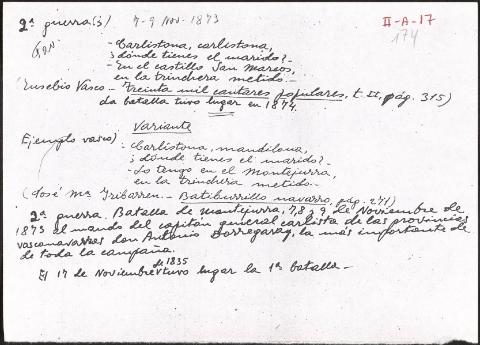 2ª guerra (3) 7-9 Nov. 1873 II-A-17
174
- Carlistona, carlistona,
¿dónde tienes el marido?-
- En el castillo San Marcos,
en la trinchera metido.-
(Eusebio Vasco - Treinta mil cantares populares, t. II, pág. 315)
La batalla tuvo lugar en 1874.
Variante
Ejemplo vasco)
- Carlistona, mandilona,
¿dónde tienes el marido?-
- Lo tengo en el Montejurra,
en la trinchera metido.-
(José Mª Iribarren - Batiburrillo navarro, pág. 271)
2ª guerra. Batalla de Montejurra, 7, 8 y 9 de Noviembre de
1873 al mando del capitán general carlista de las provincias
vasconavarras don Antonio Dorregaray, la más importante de
de toda la campaña.
de 1835
El 17 de Noviembre tuvo lugar la 1ª batalla -